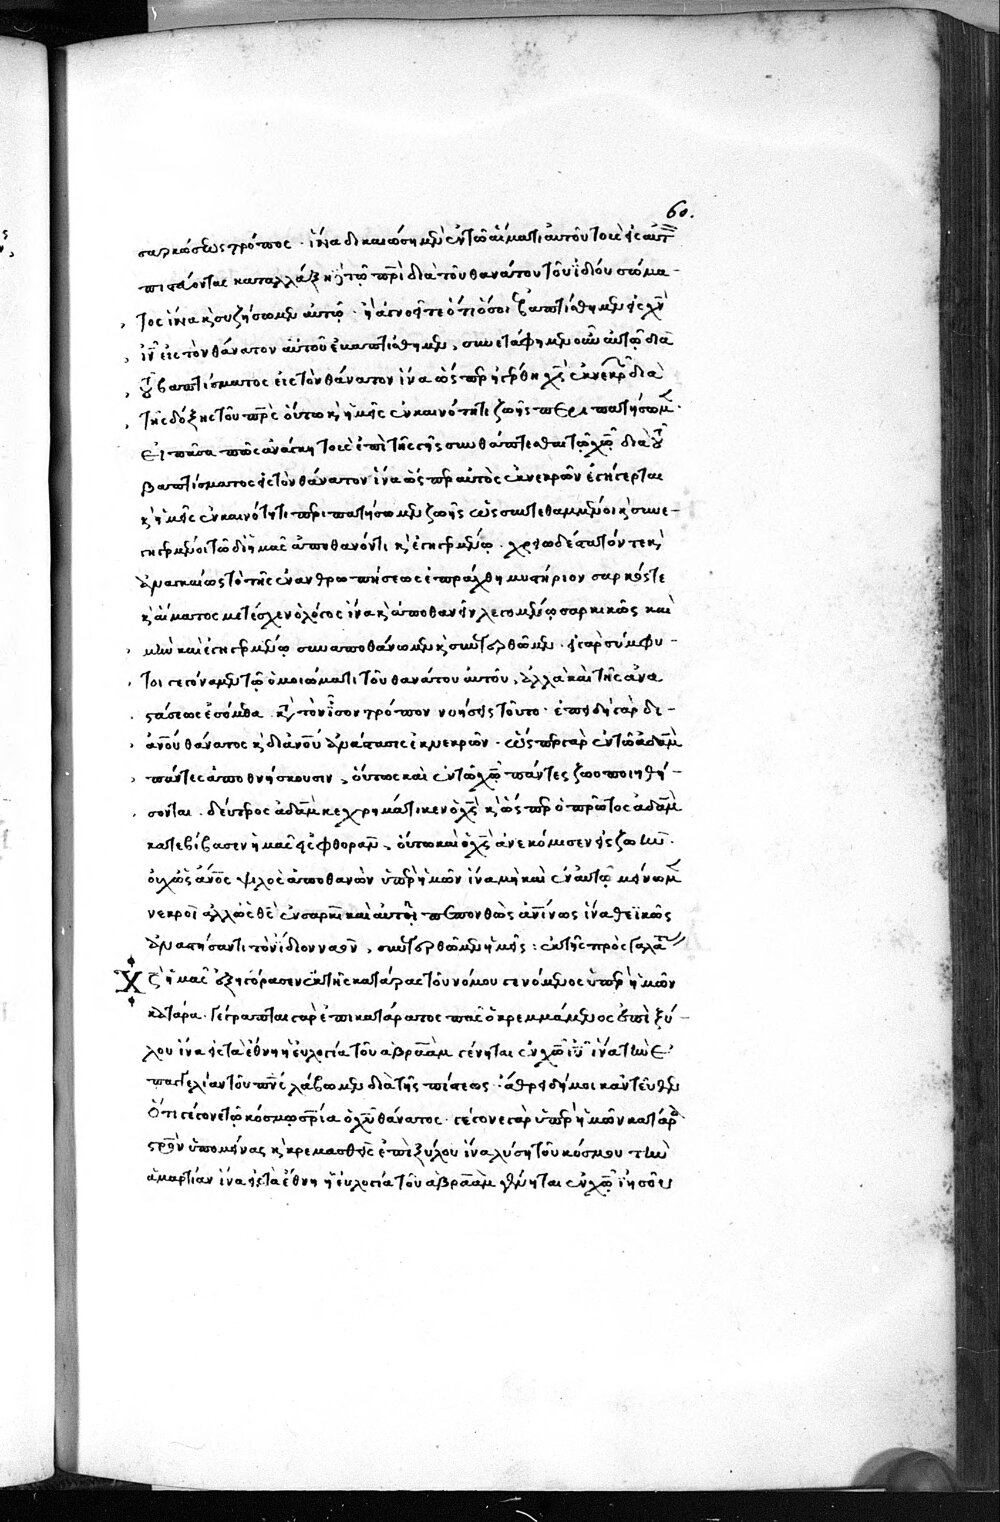 60.
σαρκώσεως τρόπος · ἵνα δικαιώση μὲν ἐν τῶ αἵματι αὐτοῦ τοὺς εἰς αὐτ
πιστεύοντας καταλλάξη τῶ πρι διὰ τοῦ θανάτου τοῦ ἰδίου σώμα-
τος ἵνα κ συζήσωμεν αὐτῶ · ἢ ἀγνοεῖτε ὅτι ὅσοι ἐβαπτίσθημεν εἰς χν
ιν εἰς τὸν θάνατον αὐτοῦ ἐβαπτίσθημεν, συνετάφημεν οὖν αὐτῶ διὰ
τοῦ βαπτίσματος εἰς τὸν θάνατον ἵνα ὥσπερ ἠγέρθη χς ἐκ νεκρῶν διὰ
τῆς δόξης τοῦ πρς οὕτω κ ἡμεῖς ἐν καινότητι ζωῆς περιπατήσωμ ·
Εἶτα πῶς ἀνάγκη τοῖς ἐπὶ τῆς γῆς συνθάπτεσθαι τῶ χω διὰ τοῦ
βαπτίσματος εἰς τὸν θάνατον ἵνα ὥσπερ αὐτὸς ἐκ νεκρῶν ἐγήγερται
κ ἡμεῖς ἐν καινότητι περιπατήσωμεν ζωῆς ὡς συντεθαμμένοι κ συνε-
γηγερμένοι τῶ δι ἡμᾶς ἀποθανόντι κ ἐγηγερμένω · χρειωδέστατόν τε κ
ἀναγκαίως τὸ τῆς ἐνανθρωπήσεως ἐπράχθη μυστήριον σαρκός τε
κ αἵματος μετέσχεν ὁ λόγος ἵνα κ ἀποθανεῖν λεγομένω σαρκικῶς καὶ
μὴν καὶ ἐγηγερμένω συναποθάνωμεν κ συνεγερθῶμεν · εἰ γὰρ σύμφυ-
τοι γεγόναμεν τῶ ὁμοιώματι τοῦ θανάτου αὐτοῦ, ἀλλὰ καὶ τῆς ἀνα
στάσεως ἐσόμεθα · κατὰ τὸν ἴσον τρόπον νοήσεις τοῦτο · ἐπειδὴ γὰρ δι-
ανου θάνατος κ δι ανου ἀνάστασις ἐκ νεκρῶν · ὥσπερ γὰρ ἐν τῶ ἀδὰμ
πάντες ἀποθνήσκουσιν, οὕτως καὶ ἐν τῶ χω πάντες ζωοποιηθή-
σονται · δεύτερος ἀδὰμ κεχρημάτικεν ὁ χς κ ὥσπερ ὁ πρῶτος ἀδὰμ
κατεβίβασεν ἡμᾶς εἰς φθοράν, οὕτω καὶ ὁ χς ἀνεκόμισεν εἰς ζωήν ·
οὐχ ὡς ανος ψιλὸς ἀποθανὼν ὑπὲρ ἡμῶν ἵνα μὴ καὶ ἐν αὐτῶ μείνωμ
νεκροὶ ἀλλ ὡς θς ἐν σαρκὶ καὶ αὐτὸ πεπονθὼς ανινως ἵνα θεϊκῶς
ἀναστήσαντι τὸν ἴδιον ναὸν, συνεγερθῶμεν ἡμεῖς : ἐκ τῆς πρὸς γαλατ
Χς ἡμᾶς ἐξηγόρασεν ἐκ τῆς κατάρας τοῦ νόμου γενόμενος ὑπὲρ ἡμῶν
κατάρα · Γέγραπται γὰρ ἐπικατάρατος πᾶς ὁ κρεμμάμενος ἐπὶ ξύ-
λου ἵνα εἰς τὰ ἔθνη ἡ εὐλογία τοῦ ἀβραὰμ γένηται ἐν χω ιυ ἵνα τὴν ἐ-
παγγελίαν τοῦ πνς λάβωμεν διὰ τῆς πίστεως · ἄθρει δή μοι κἀντεῦθεν
Ὅτι γέγονε τῶ κόσμω σρία ὁ χυ θάνατος · γέγονε γὰρ ὑπὲρ ἡμῶν κατάρ
στρον ὑπομείνας κ κρεμασθεὶς ἐπὶ ξύλου ἵνα λύση τοῦ κόσμου τὴν
ἁμαρτίαν ἵνα εἰς τὰ ἔθνη ἡ εὐλογία τοῦ ἀβραὰμ γένηται ἐν χω ἰησοῦ